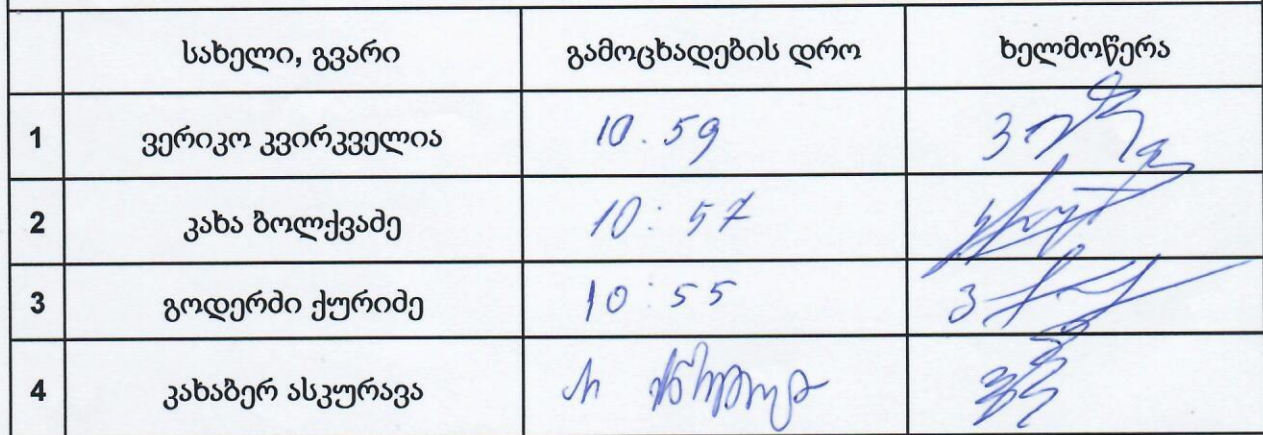 სახელი, გვარი გამოცხადების დრო ხელმოწერა
1 ვერიკო კვირკველია 10.59
2 კახა ბოლქვაძე 10:57
3 გოდერძი ქურიძე 10:55
4 კახაბერ ასკურავა